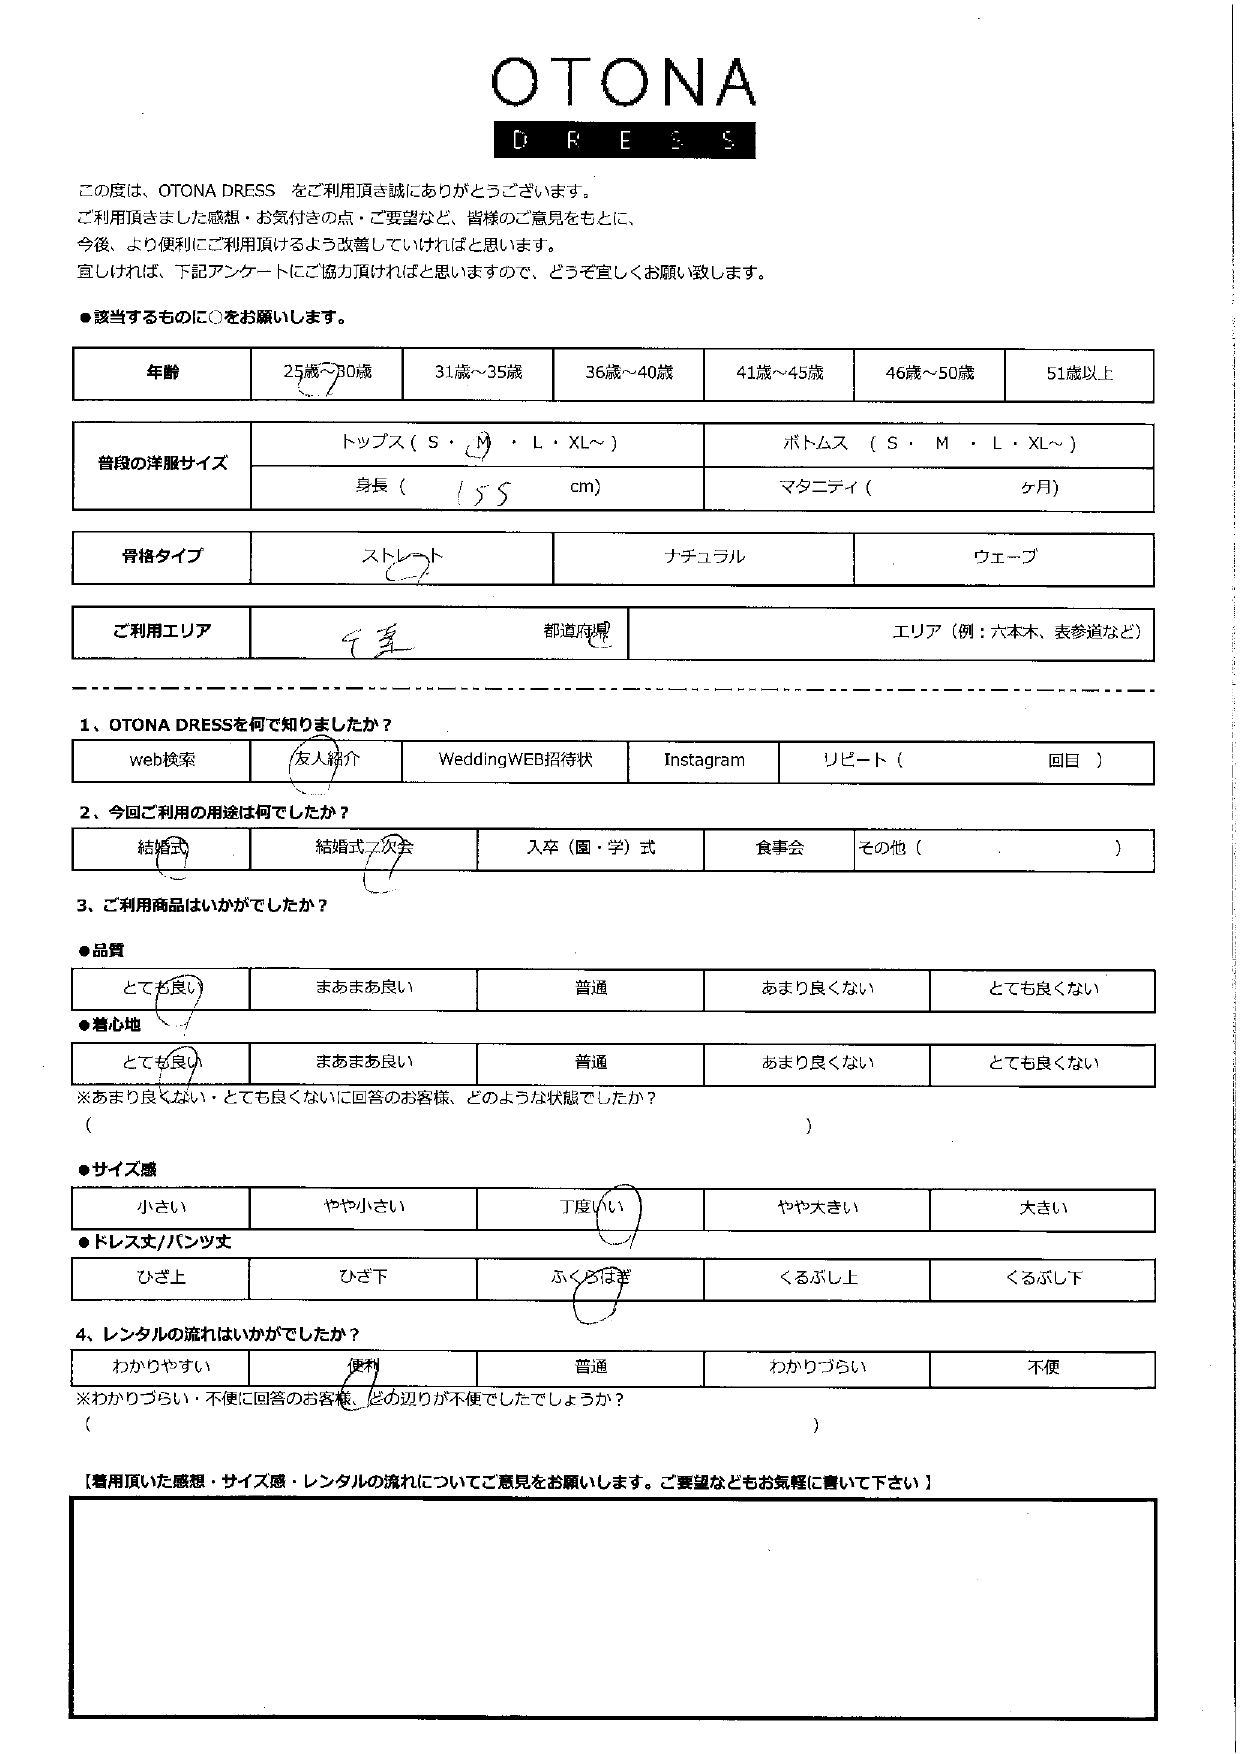 OTONA
DRESS
この度は、OTONA DRESS　をご利用頂き誠にありがとうございます。
ご利用頂きました感想・お気付きの点・ご要望など、皆様のご意見をもとに、
今後、より便利にご利用頂けるよう改善していければと思います。
宜しければ、下記アンケートにご協力頂ければと思いますので、どうぞ宜しくお願い致します。
●該当するものに○をお願いします。
年齢 25歳～30歳 31歳～35歳 36歳～40歳 41歳～45歳 46歳～50歳 51歳以上
普段の洋服サイズ トップス ( S ・ M ・ L ・ XL～ ) ボトムス ( S ・ M ・ L ・ XL～ )
身長 ( 155 cm) マタニティ ( ヶ月)
骨格タイプ ストレート ナチュラル ウェーブ
ご利用エリア 千葉 都道府県 エリア（例：六本木、表参道など）
1、OTONA DRESSを何で知りましたか？
web検索 友人紹介 WeddingWEB招待状 Instagram リピート ( 回目 )
2、今回ご利用の用途は何でしたか？
結婚式 結婚式二次会 入卒（園・学）式 食事会 その他 ( )
3、ご利用商品はいかがでしたか？
●品質
とても良い まあまあ良い 普通 あまり良くない とても良くない
●着心地
とても良い まあまあ良い 普通 あまり良くない とても良くない
※あまり良くない・とても良くないに回答のお客様、どのような状態でしたか？
( )
●サイズ感
小さい やや小さい 丁度いい やや大きい 大きい
●ドレス丈/パンツ丈
ひざ上 ひざ下 ふくらはぎ くるぶし上 くるぶし下
4、レンタルの流れはいかがでしたか？
わかりやすい 便利 普通 わかりづらい 不便
※わかりづらい・不便に回答のお客様、どの辺りが不便でしたでしょうか？
( )
【着用頂いた感想・サイズ感・レンタルの流れについてご意見をお願いします。ご要望などもお気軽に書いて下さい 】